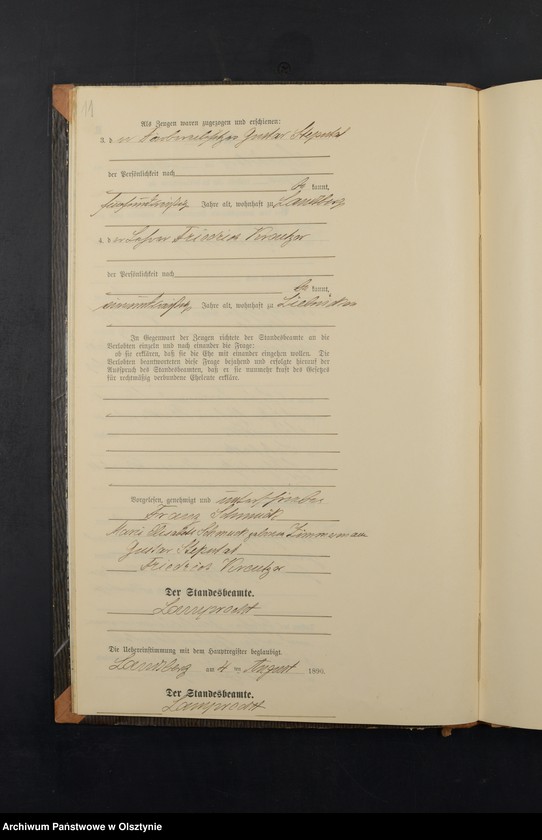 11
Als Zeugen waren zugezogen und erschienen:
3. der Gustav Steputat
der Persönlichkeit nach
be kannt,
Jahre alt, wohnhaft zu Landsberg
4. der Lehrer Friedrich Kreutzer
der Persönlichkeit nach
be kannt,
Jahre alt, wohnhaft zu
In Gegenwart der Zeugen richtete der Standesbeamte an die
Verlobten einzeln und nach einander die Frage:
ob sie erklären, daß sie die Ehe mit einander eingehen wollen. Die
Verlobten beantworteten diese Frage bejahend und erfolgte hierauf der
Ausspruch des Standesbeamten, daß er sie nunmehr kraft des Gesetzes
für rechtmäßig verbundene Eheleute erkläre.
Vorgelesen, genehmigt und unterschrieben
Franz Schmidt
Marie Elisabeth Schmidt geborne Zimmermann
Gustav Steputat
Friedrich Kreutzer
Der Standesbeamte.
Lamprecht
Die Uebereinstimmung mit dem Hauptregister beglaubigt.
Landsberg am 4 ten August 1890.
Der Standesbeamte.
Lamprecht
Archiwum Państwowe w Olsztynie